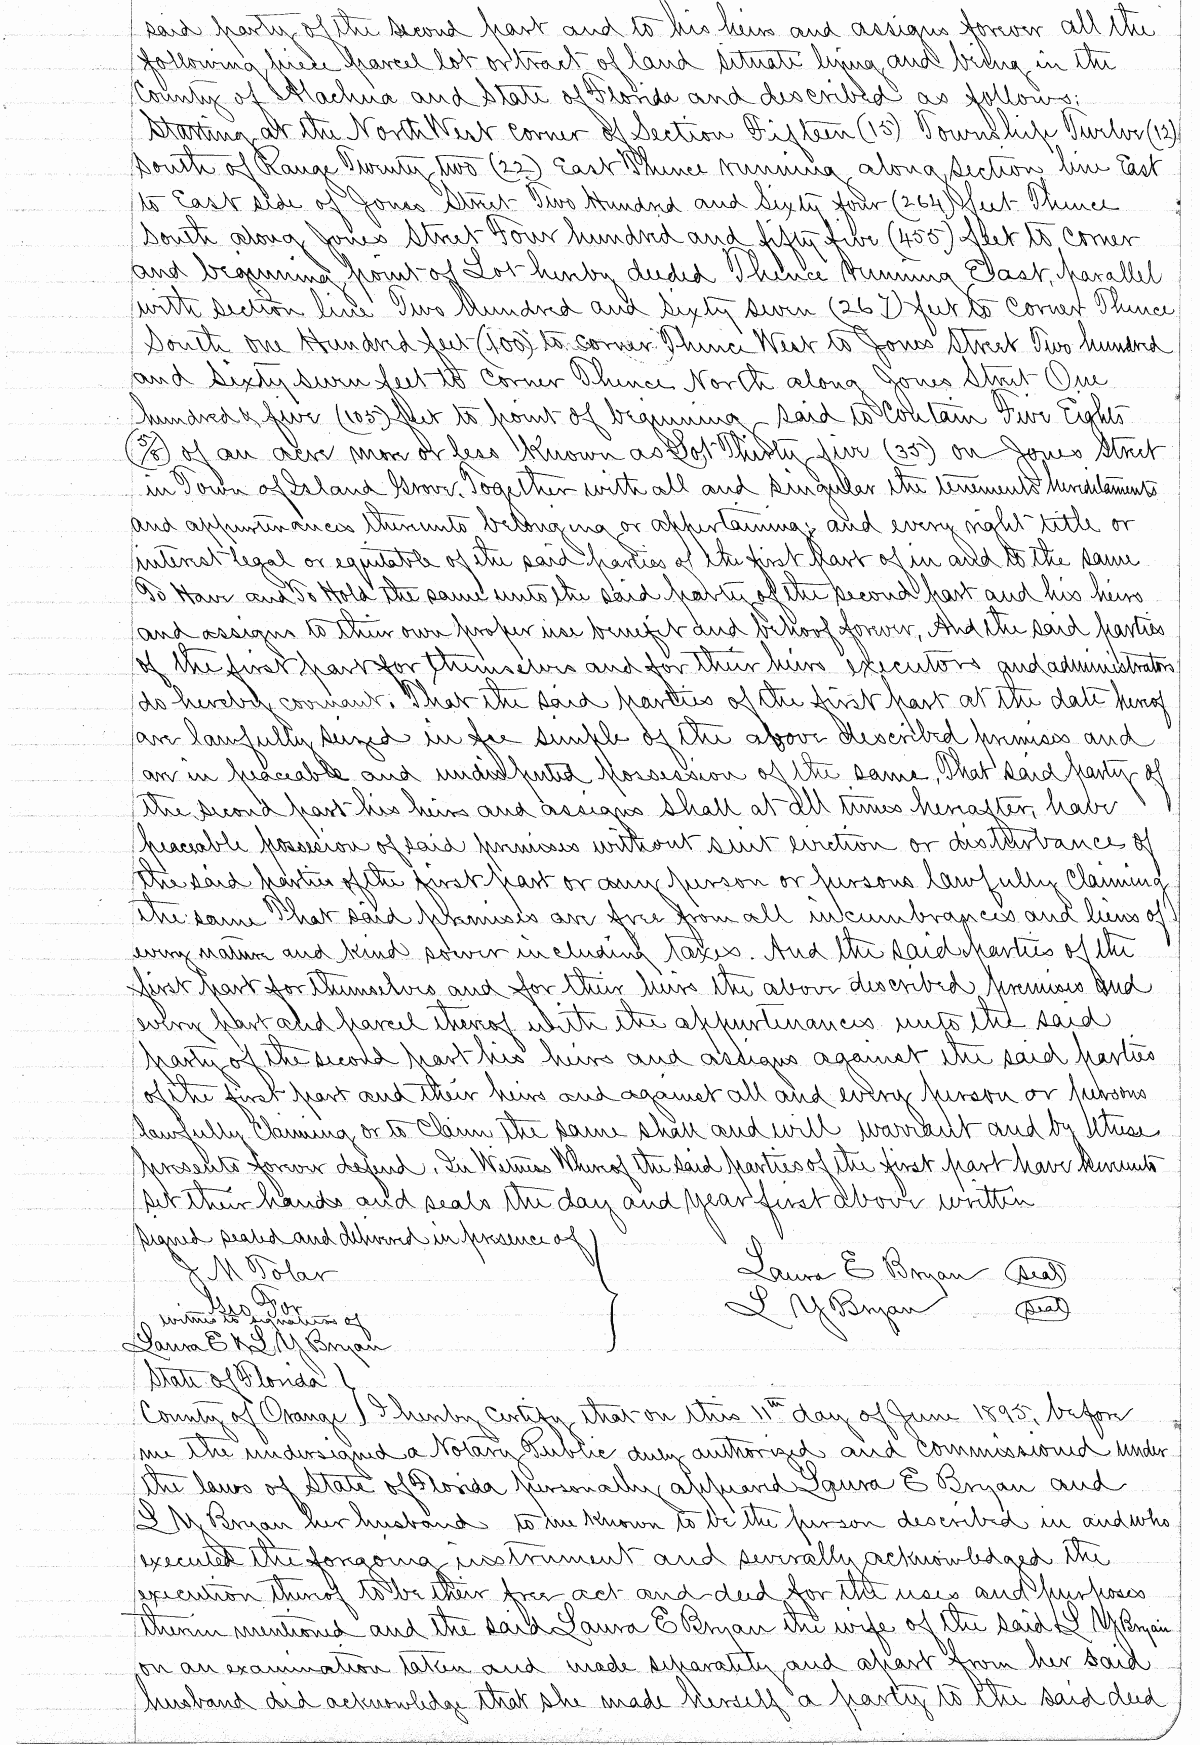 said party of the second part and to his heirs and assigns forever all the
following piece parcel lot or tract of land situate lying and being in the
County of Alachua and State of Florida and described as follows;
Starting at the North West corner of Section Fifteen (15) Township Twelve (12)
South of Range Twenty two (22) East Thence running along section line East
to East side of Jones Street Two Hundred and Sixty four (264) feet Thence
South along Jones Street Four hundred and fifty five (455) feet to corner
and beginning point of Lot hereby deeded Thence running East, parallel
with section line Two hundred and sixty seven (267) feet to corner Thence
South one Hundred feet (100) to corner Thence West to Jones Street Two hundred
and Sixty seven feet to corner Thence North along Jones Street One
hundred & five (105) feet to point of beginning said to Contain Five Eights
(5/8) of an acre more or less Known as Lot Thirty five (35) on Jones Street
in Town of Island Grove. Together with all and singular the tenements hereditaments
and appurtenances thereunto belonging or appertaining; and every right title or
interest legal or equitable of the said parties of the first part of in and to the same
To Have and To Hold the same unto the said party of the second part and his heirs
and assigns to their own proper use benefit and behoof forever, And the said parties
of the first part for themselves and for their heirs executors and administrators
do hereby covenant. That the said parties of the first part at the date hereof
are lawfully seized in fee simple of the above described premises and
are in peaceable and undisputed possession of the same, That said party of
the second part his heirs and assigns shall at all times hereafter, have
peaceable possession of said premises without suit eviction or disturbance of
the said parties of the first part or any person or persons lawfully Claiming
the same That said premises are free from all incumbrances and liens of
every nature and kind soever including taxes. And the said parties of the
first part for themselves and for their heirs the above described premises and
every part and parcel thereof with the appurtenances unto the said
party of the second part his heirs and assigns against the said parties
of the first part and their heirs and against all and every person or persons
lawfully Claiming or to Claim the same shall and will warrant and by these
presents forever defend. In Witness Whereof the said parties of the first part have hereunto
set their hands and seals the day and year first above written
Signed sealed and delivered in presence of
J M Tolar
Laura E Bryan (seal)
Geo Fox
L Y Bryan (seal)
witness to signatures of
Laura E & L Y Bryan
State of Florida
County of Orange ) I hereby certify that on this 11th day of June 1895, before
me the undersigned a Notary Public duly authorized and commissioned under
the laws of State of Florida personally appeared Laura E Bryan and
L Y Bryan her husband to me known to be the person described in and who
executed the forgoing instrument and severally acknowledged the
execution thereof to be their free act and deed for the uses and purposes
therein mentioned and the said Laura E Bryan the wife of the said L Y Bryan
on an examination taken and made separately and apart from her said
husband did acknowledge that she made herself a party to the said deed